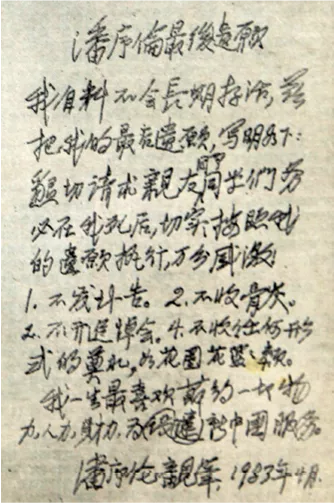 潘序倫最後遺願
我自料不会長期存活，茲
把我的最后遺願，写明於下：
懇切请求親友同事同学們務
必在我死后，切実按照我
的遺願执行，万分感激！
1. 不发讣告。2. 不收骨灰。
3. 不开追悼会。4. 不收任何形
式的奠礼，如花圈花篮、款。
我一生最喜欢节约一切物
力、人力、财力，为建設新中國服務。
潘序伦親筆，1983年4月.